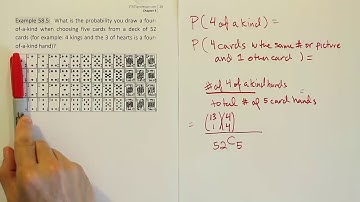 Chapter 5
Example 58.5: What is the probability you draw a four-
of-a-kind when choosing five cards from a deck of 52
cards (for example: 4 kings and the 3 of hearts is a four-
of-a-kind hand)?
P(4 of a kind) =
P(4 cards is the same # or picture
and 1 other card) =
# of 4 of a kind hands
total # of 5 card hands
= (13 1)(4 4)
52C5